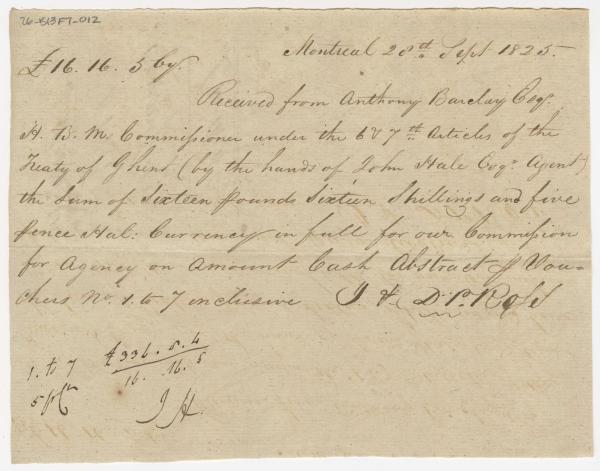 26-B13F7-012
Montreal 28th Sept 1825.
£16. 16. 5 Cy.
Received from Anthony Barclay Esqr.
H. B. M. Commissioner under the 6 & 7th Articles of the
Treaty of Ghent (by the hands of John Hale Esqr. Agent)
the Sum of Sixteen pounds Sixteen Shillings and five
pence Hal: Currency in full for our Commission
for Agency on amount Cash Abstract of Vou-
chers No. 1. to 7 inclusive J. & D. P. Ross
1. to 7 £336. 8. 4
5 16. 16. 5
J H.